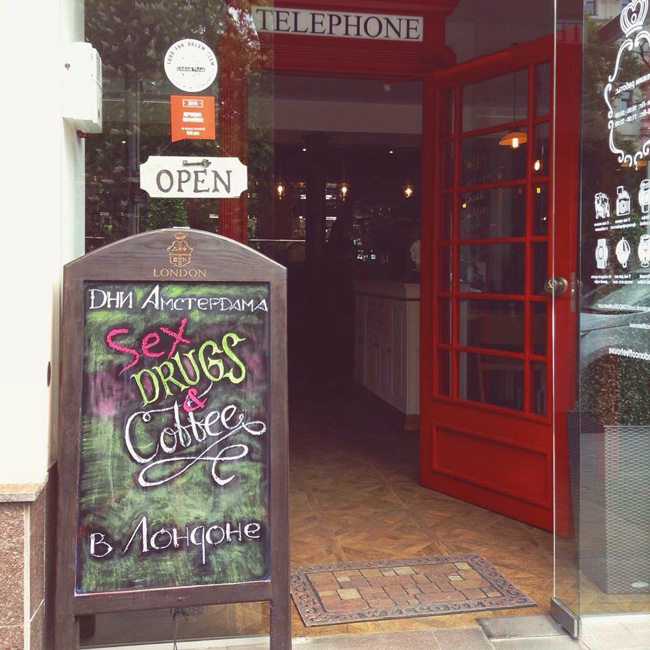 TELEPHONE
OPEN
LONDON
Дни Амстердама
Sex
DRUGS
&
Coffee
в Лондоне